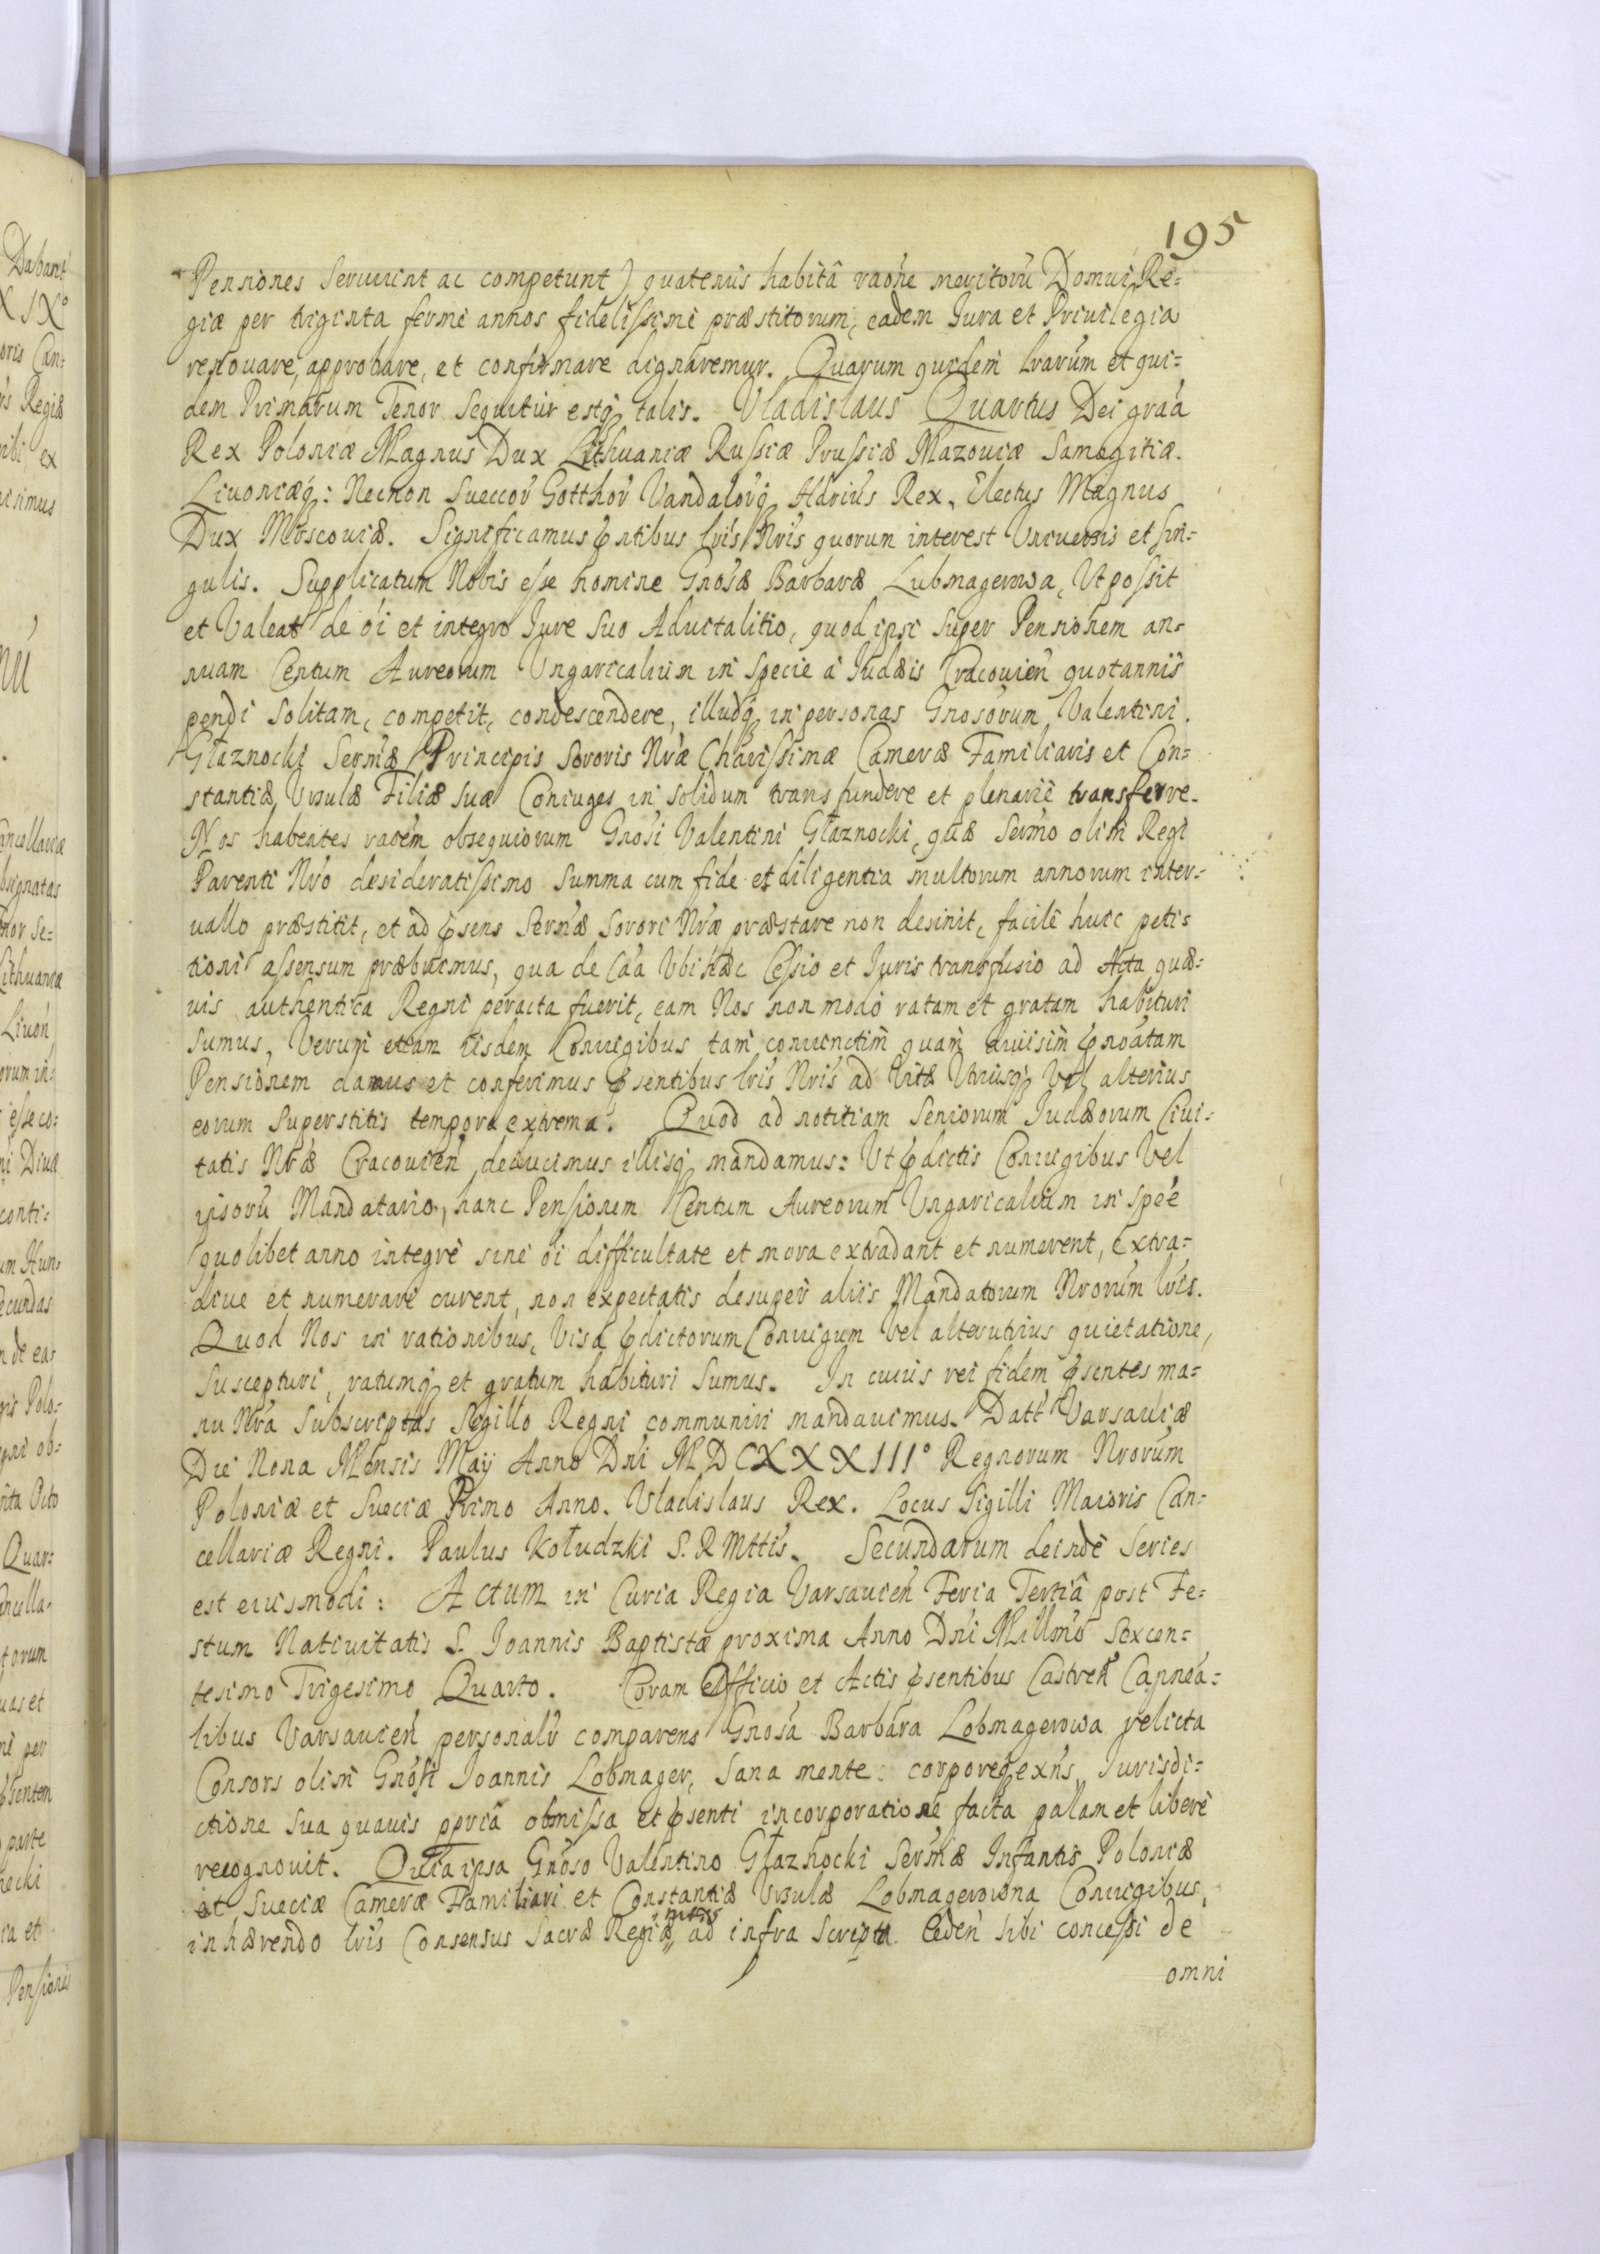 195
Pensiones Seruiunt ac competunt) quatenus habitâ raōne meritorū Domui Re-
giæ per triginta fermè annos fidelissimè præstitorum, eadem Iura et Priuilegia
renouare, approbare, et confirmare dignaremur. Quarum quidem lrarum et qui-
dem Primarum Tenor Sequitur estq talis. Vladislaus Quartus Dei graá
Rex Poloniæ Magnus Dux Lithuaniæ Russiæ Prussiæ Mazouiæ Samogitiæ.
Liuoniæq: Necnon Sueccor̄ Gotthor̄ Vandalor̄q Hdrius Rex, Electus Magnus
Dux Moscouiæ. Significamus p̄ntibus lris Nris quorum interest Vniuersis et sin-
gulis. Supplicatum Nobis esse nomine Gnosæ Barbaræ Lubmagerowa, Vt possit
et Valeat de oi et integro Iure Suo Aduitalitio, quod ipsi Super Pensionem an-
nuam Centum Aureorum Vngaricalium in Specie à Iudæis Cracouien̄ quotannis
pendi Solitam, competit, condescendere, illudq in personas Gnosorum Valentini
Głaznocki Sermæ Principis Sororis Nræ Charissimæ Cameræ Familiaris et Con-
stantiæ Vrsulæ Filiæ Suæ Coniuges in solidum transfundere et plenariè transferre.
Nos habentes raōem obsequiorum Gnosi Valentini Głaznocki, quæ Sermo olim Regi
Parenti Nro desideratissimo Summa cum fide et diligentia multorum annorum inter-
uallo præstitit, et ad p̄sens Sermæ Sorori Nræ præstare non desinit, facilè huic peti-
tioni assensum præbuimus, qua de Caá Vbi hæc Cessio et Iuris transfusio ad Acta quæ-
uis authentica Regni peracta fuerit, eam Nos non modo ratam et gratam habituri
Sumus, Verum etiam iisdem Coniugibus tam coniunctim quam diuisim p̄noatam
Pensionem damus et conferimus p̄sentibus lris Nris ad Vitæ Vtriusq Vel alterius
eorum Superstitis tempora extrema. Quod ad notitiam Seniorum Iudæorum Ciui-
tatis Nræ Cracouien̄ deducimus illisq mandamus: Vt p̄dictis Coniugibus Vel
ipsorū Mandatario, hanc Pensionem Centum Aureorum Vngaricalium in spēe
quolibet anno integrè sine oi difficultate et mora extradant et numerent, Extra-
diue et numerare curent, non expectatis desuper aliis Mandatorum Nrorum lris.
Quod Nos in rationibus, Visa p̄dictorum Coniugum Vel alterutrius quietatione,
Suscepturi, ratumq et gratum habituri Sumus. In cuius rei fidem p̄sentes ma-
nu Nra Subscriptas Sigillo Regni communiri mandauimus. Datt Varsauiæ
Die Nona Mensis Maij Anno Dni MDCXXXIII° Regnorum Nrorum
Poloniæ et Sueciæ Primo Anno. Vladislaus Rex. Locus Sigilli Maioris Can-
cellariæ Regni. Paulus Kołudzki S. R Mttis. Secundarum deindè Series
est eiusmodi: Actum in Curia Regia Varsauien̄ Feria Tertiâ post Fe-
stum Natiuitatis S. Ioannis Baptistæ proxima Anno Dni Millmo Sexcen-
tesimo Trigesimo Quarto. Coram Officio et Actis p̄sentibus Castren̄ Capnea-
libus Varsauien̄ personalr comparens Gnosa Barbara Lobmagerowa relicta
Consors olim Gnosi Ioannis Lobmager, Sana mente corporeq exns, Iurisdi-
ctione Sua quauis ppriâ obmissa et p̄senti incorporatione facta palam et liberè
recognouit. Quia ipsa Gnoso Valentino Głaznocki Sermæ Infantis Poloniæ
et Sueciæ Cameræ Familiari et Constantiæ Vrsulæ Lobmagerowna Coniugibus,
inhærendo lris Consensus Sacræ Regiæ Mttis ad infra Scripta Ceden̄ sibi concessi de
omni